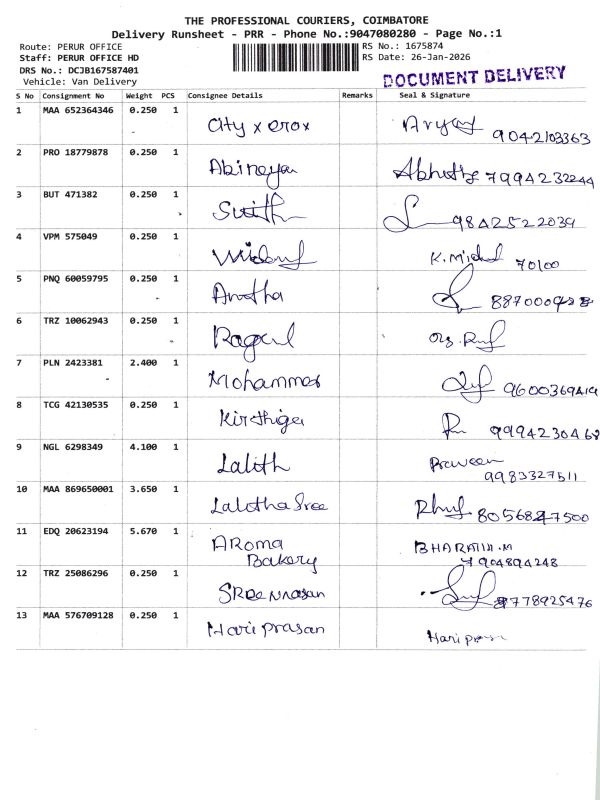 THE PROFESSIONAL COURIERS, COIMBATORE
Delivery Runsheet - PRR - Phone No.:9047080280 - Page No.:1
Route: PERUR OFFICE RS No.: 1675874
Staff: PERUR OFFICE HD RS Date: 26-Jan-2026
DRS No.: DCJB167587401
Vehicle: Van Delivery
DOCUMENT DELIVERY
S No Consignment No Weight PCS Consignee Details Remarks Seal & Signature
1 MAA 652364346 0.250 1 City xerox 9042103363
2 PRO 18779878 0.250 1 Abineya 7994232244
3 BUT 471382 0.250 1 9842522039
4 VPM 575049 0.250 1 K. 70100
5 PNQ 60059795 0.250 1
6 TRZ 10062943 0.250 1 Ragul
7 PLN 2423381 2.400 1 Mohammed 9600369419
8 TCG 42130535 0.250 1 Kirthiga 9994230468
9 NGL 6298349 4.100 1 Lalith Praveen
9983327511
10 MAA 869650001 3.650 1 Lalitha Sree
11 EDQ 20623194 5.670 1 AROMA BHARATH.M
Bakery 7904894248
12 TRZ 25086296 0.250 1 8778925476
13 MAA 576709128 0.250 1 Hari prasan Hari